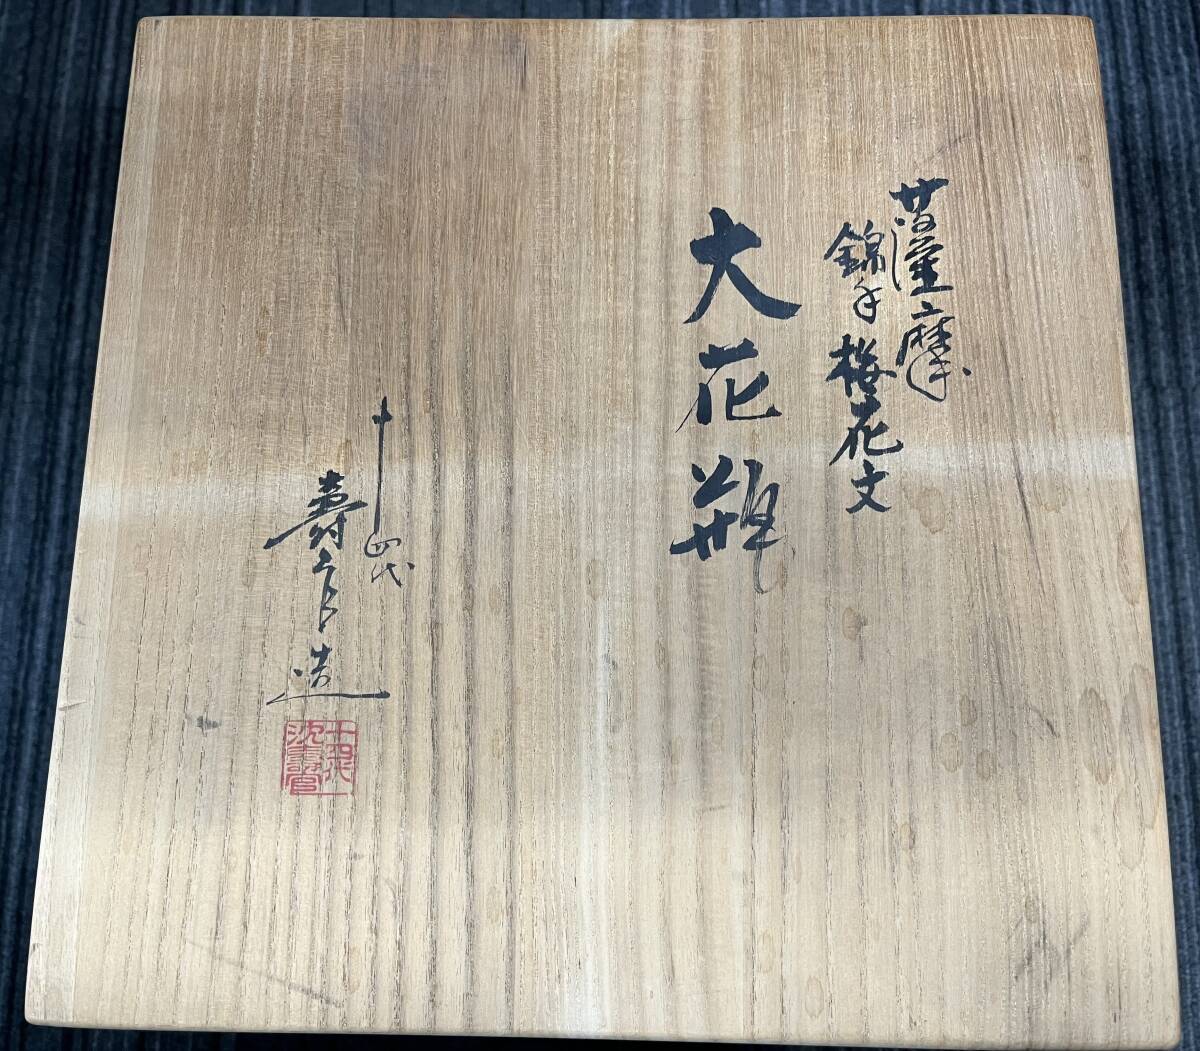 薩摩
錦手桜花文
大花瓶
十四代
壽官造
十四代
沈壽官